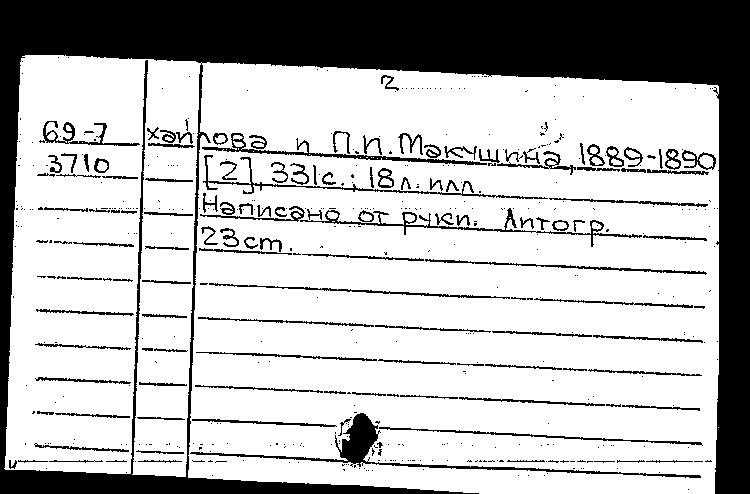 2
69-7 хайлова и П.И.Макушина, 1889-1890
3710 [2], 331с.; 18л. илл.
Написано от руки. Литогр.
23cm.